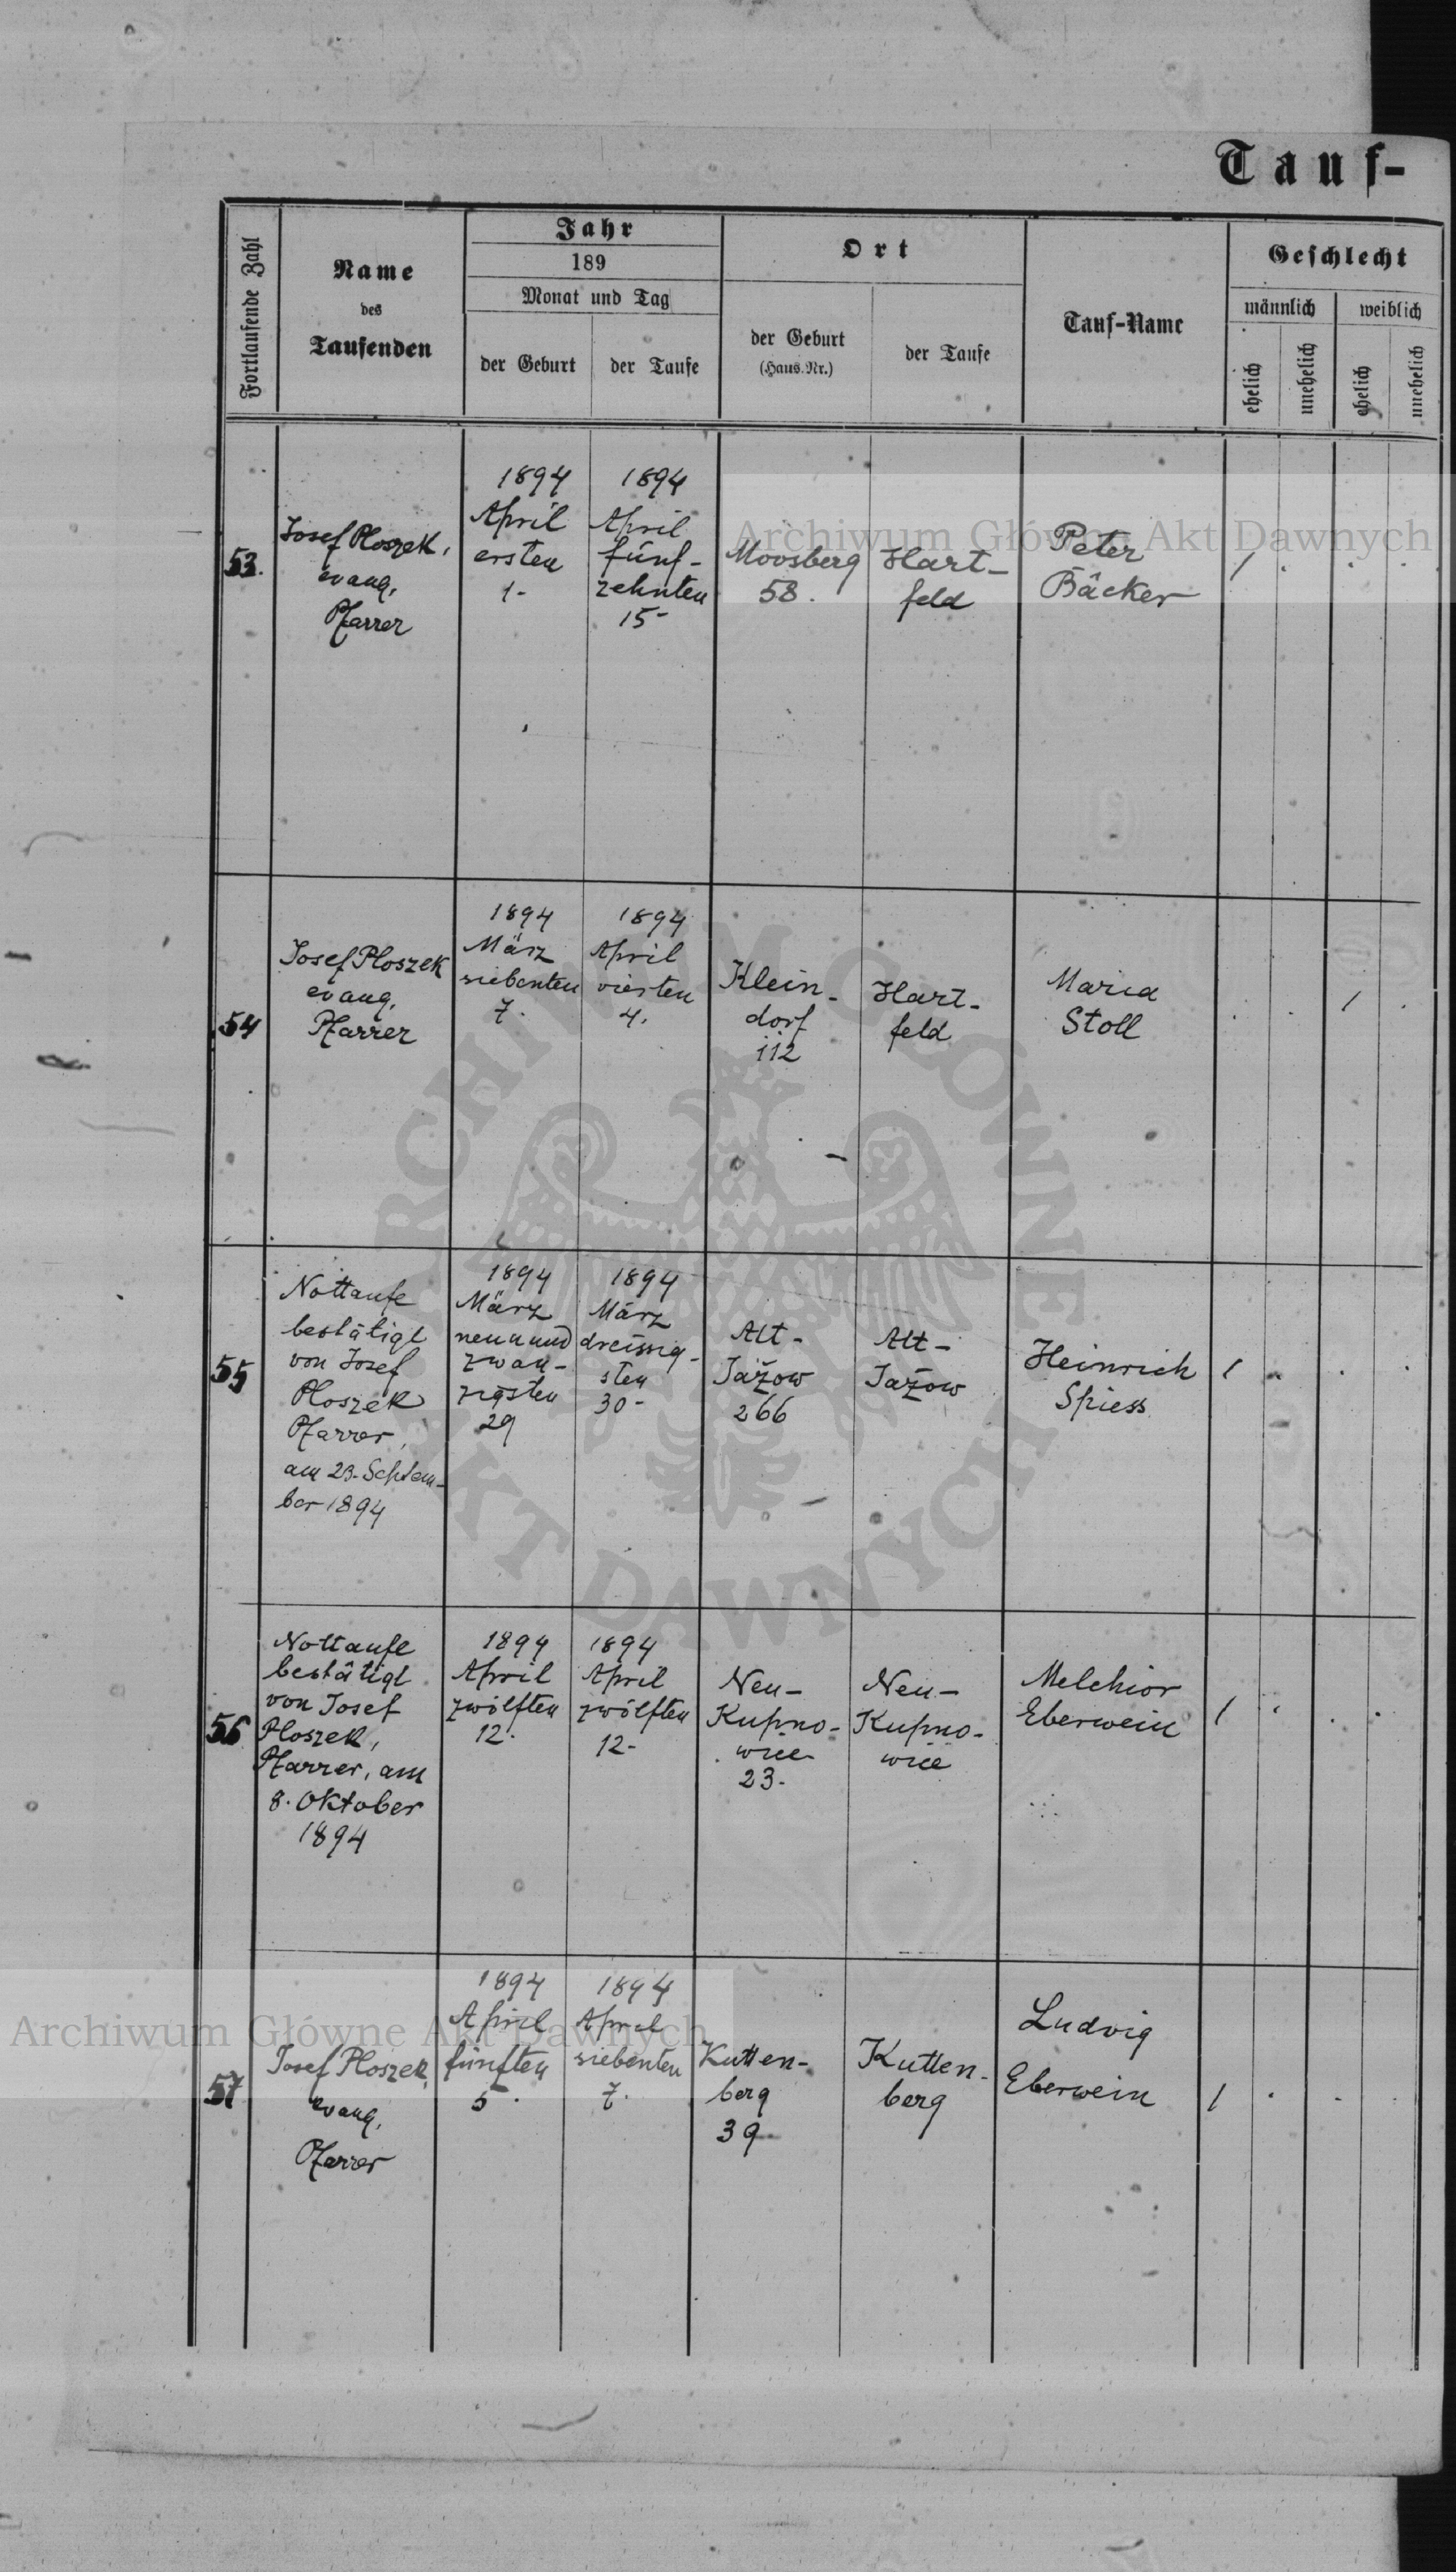 Tauf-
Fortlaufende Zahl
Name
des
Taufenden
Jahr
189
Monat und Tag
der Geburt
der Taufe
Ort
der Geburt
(Haus.Nr.)
der Taufe
Tauf-Name
Geschlecht
männlich
weiblich
ehelich
unehelich
ehelich
unehelich
53.
Josef Ploszek,
evang.
Pfarrer
1894
April
ersten
1.
1894
April
fünf-
zehnten
15
Moosberg
58.
Hart-
feld
Peter
Bäcker
1
54
Josef Ploszek
evang.
Pfarrer
1894
März
siebenten
7.
1894
April
vierten
4.
Klein-
dorf
112
Hart-
feld
Maria
Stoll
1
55
Nottaufe
bestätigt
von Josef
Ploszek
Pfarrer,
am 23. Septem-
ber 1894
1894
März
neunund
zwan-
zigsten
29
1894
März
dreissig-
sten
30-
Alt-
Jażow
266
Alt-
Jażow
Heinrich
Spiess
1
56
Nottaufe
bestätigt
von Josef
Ploszek,
Pfarrer, am
8. Oktober
1894
1894
April
zwölften
12.
1894
April
zwölften
12-
Neu-
Kupno-
wice
23.
Neu-
Kupno-
wice
Melchior
Eberwein
1
57
Josef Ploszek,
evang.
Pfarrer
1894
April
fünften
5.
1894
April
siebenten
7.
Kutten-
berg
39
Kutten-
berg
Ludvig
Eberwein
1
Archiwum Główne Akt Dawnych
ARCHIWUM GŁÓWNE AKT DAWNYCH
Archiwum Główne Akt Dawnych